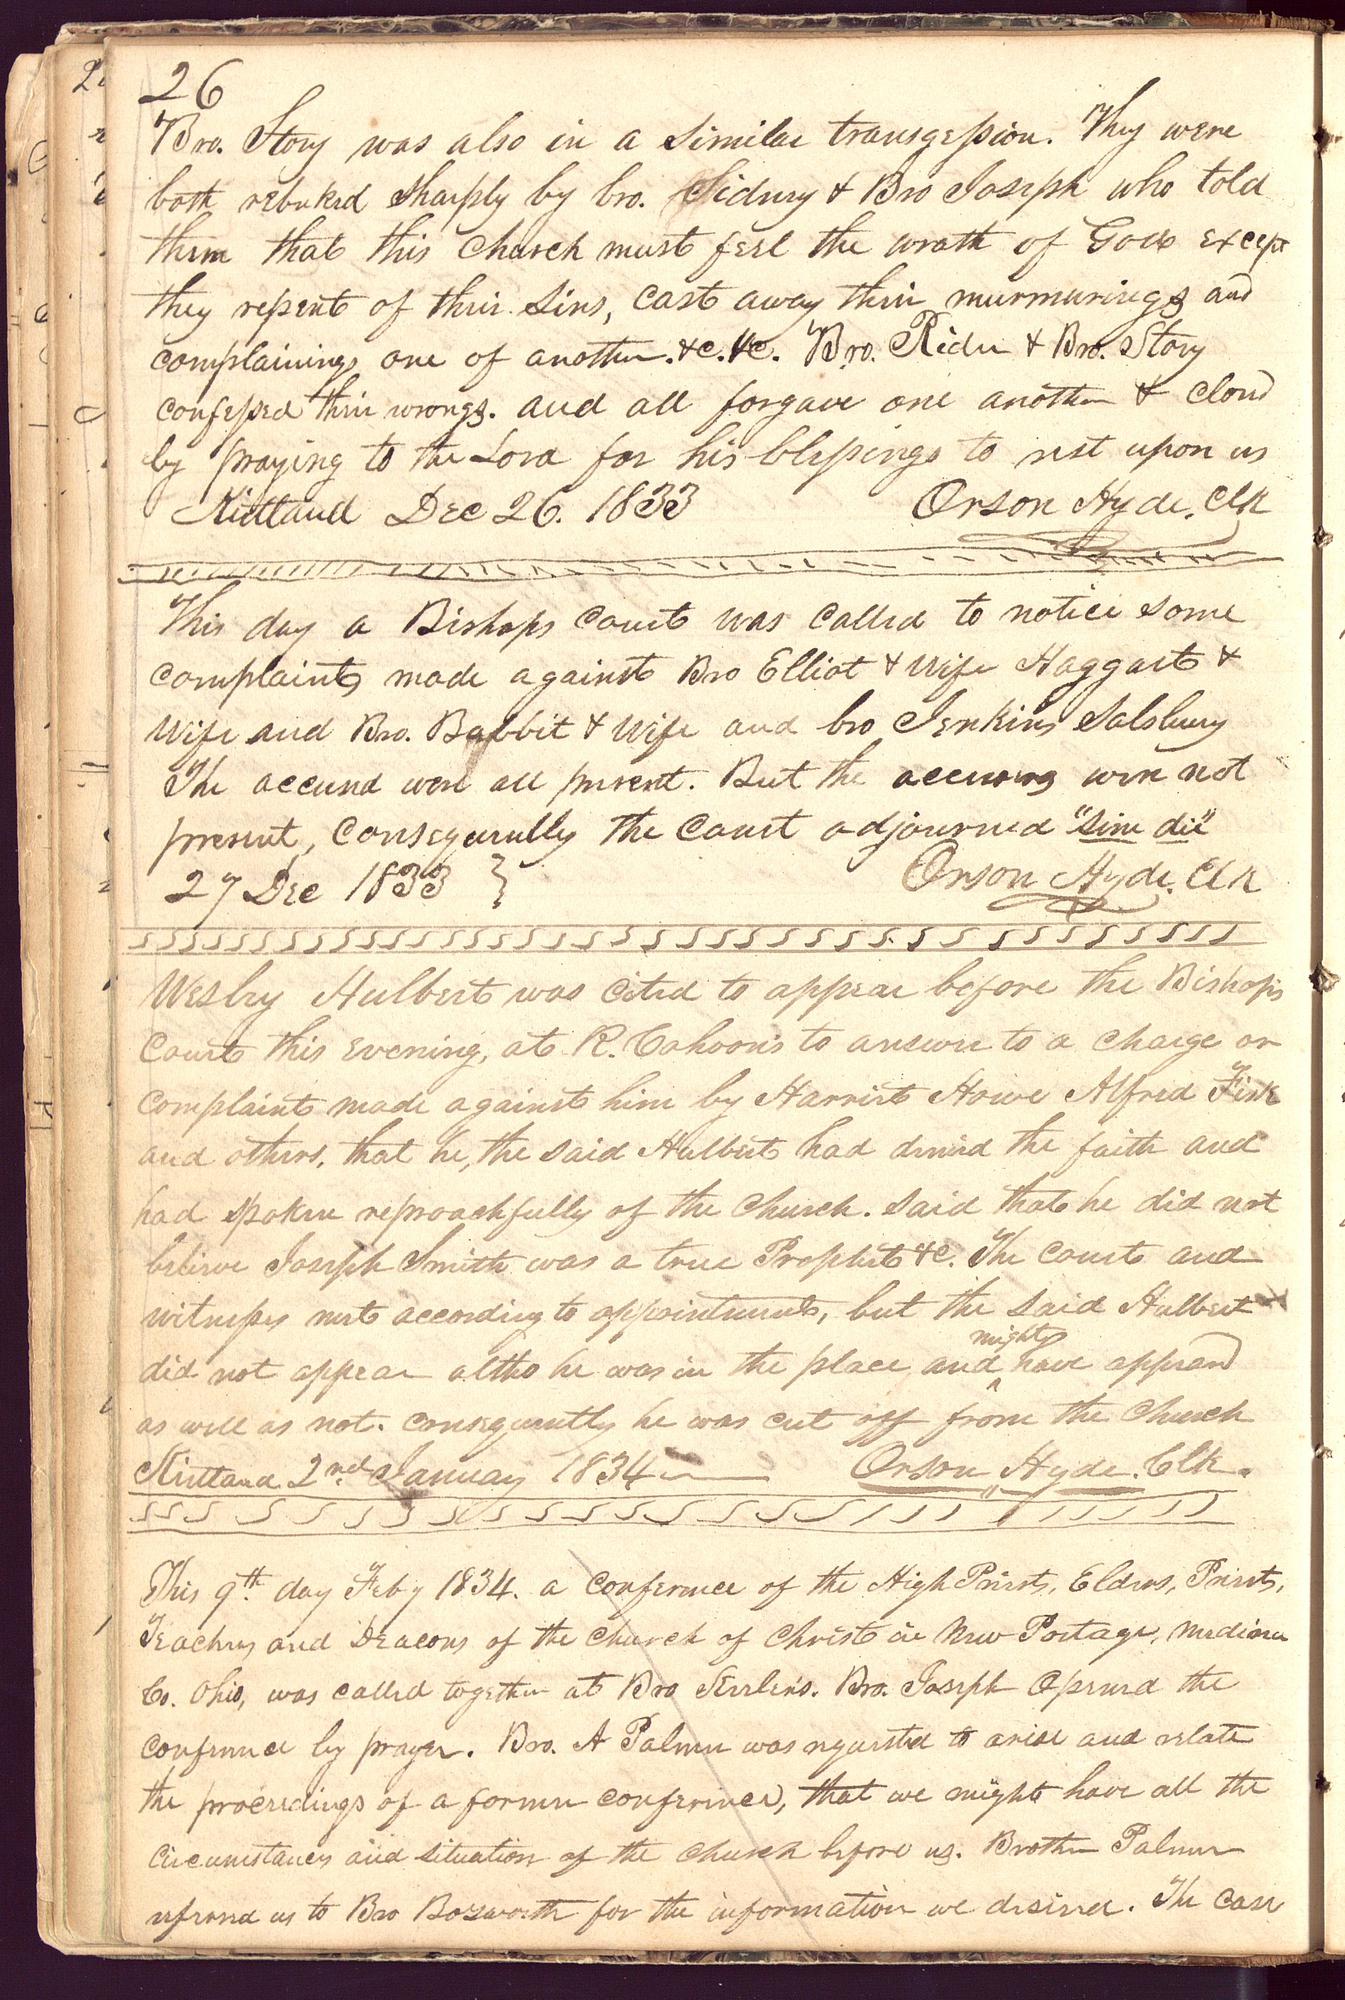 26
Bro. Story was also in a similar transgession. They were
both rebuked sharply by bro. Sidney & Bro Joseph who told
them that this Church must feel the wrath of God except
they repent of their sins, cast away their murmurings and
complainings one of another. &c. &c. Bro. Rider & Bro. Story
confessed their wrongs. and all forgave one another & closed
by praying to the Lord for his blessings to rest upon us
Kirtland Dec 26. 1833 Orson Hyde. Clk
This day a Bishops court was called to notice some
complaints made against Bro Elliot & wife Haggart &
wife and Bro. Babbit & wife and bro Jenkins Salsbury
The accused were all present. But the accusers were not
present, consequently the court adjourned "sine die"
27 Dec 1833 } Orson Hyde. Clk
Wesley Hulbert was cited to appear before the Bishop's
Court this evening, at R. Cahoon's to answer to a charge or
complaint made against him by Harriet Howe Alfred Fisk
and others, that he, the said Hulbert had denied the faith and
had spoken reproachfully of the church. said that he did not
believe Joseph Smith was a true Prophet &c. The court and
witnesses met according to appointment, but the said Hulbert
did not appear altho he was in the place and might have appeared
as well as not. consequently he was cut off from the Church
Kirtland 2nd January 1834 Orson Hyde. Clk.
This 9th. day Feby 1834. a conference of the High Priests, Elders, Priests,
Teachers and Deacons of the church of Christ in New Portage, Medina
Co. Ohio, was called together at Bro Kirlin's. Bro. Joseph opened the
conference by prayer. Bro. A Palmer was requested to arise and relate
the proceedings of a former conference, that we might have all the
circumstances and situation of the church before us. Brother Palmer
refered us to Bro Bosworth for the information we desired. The case